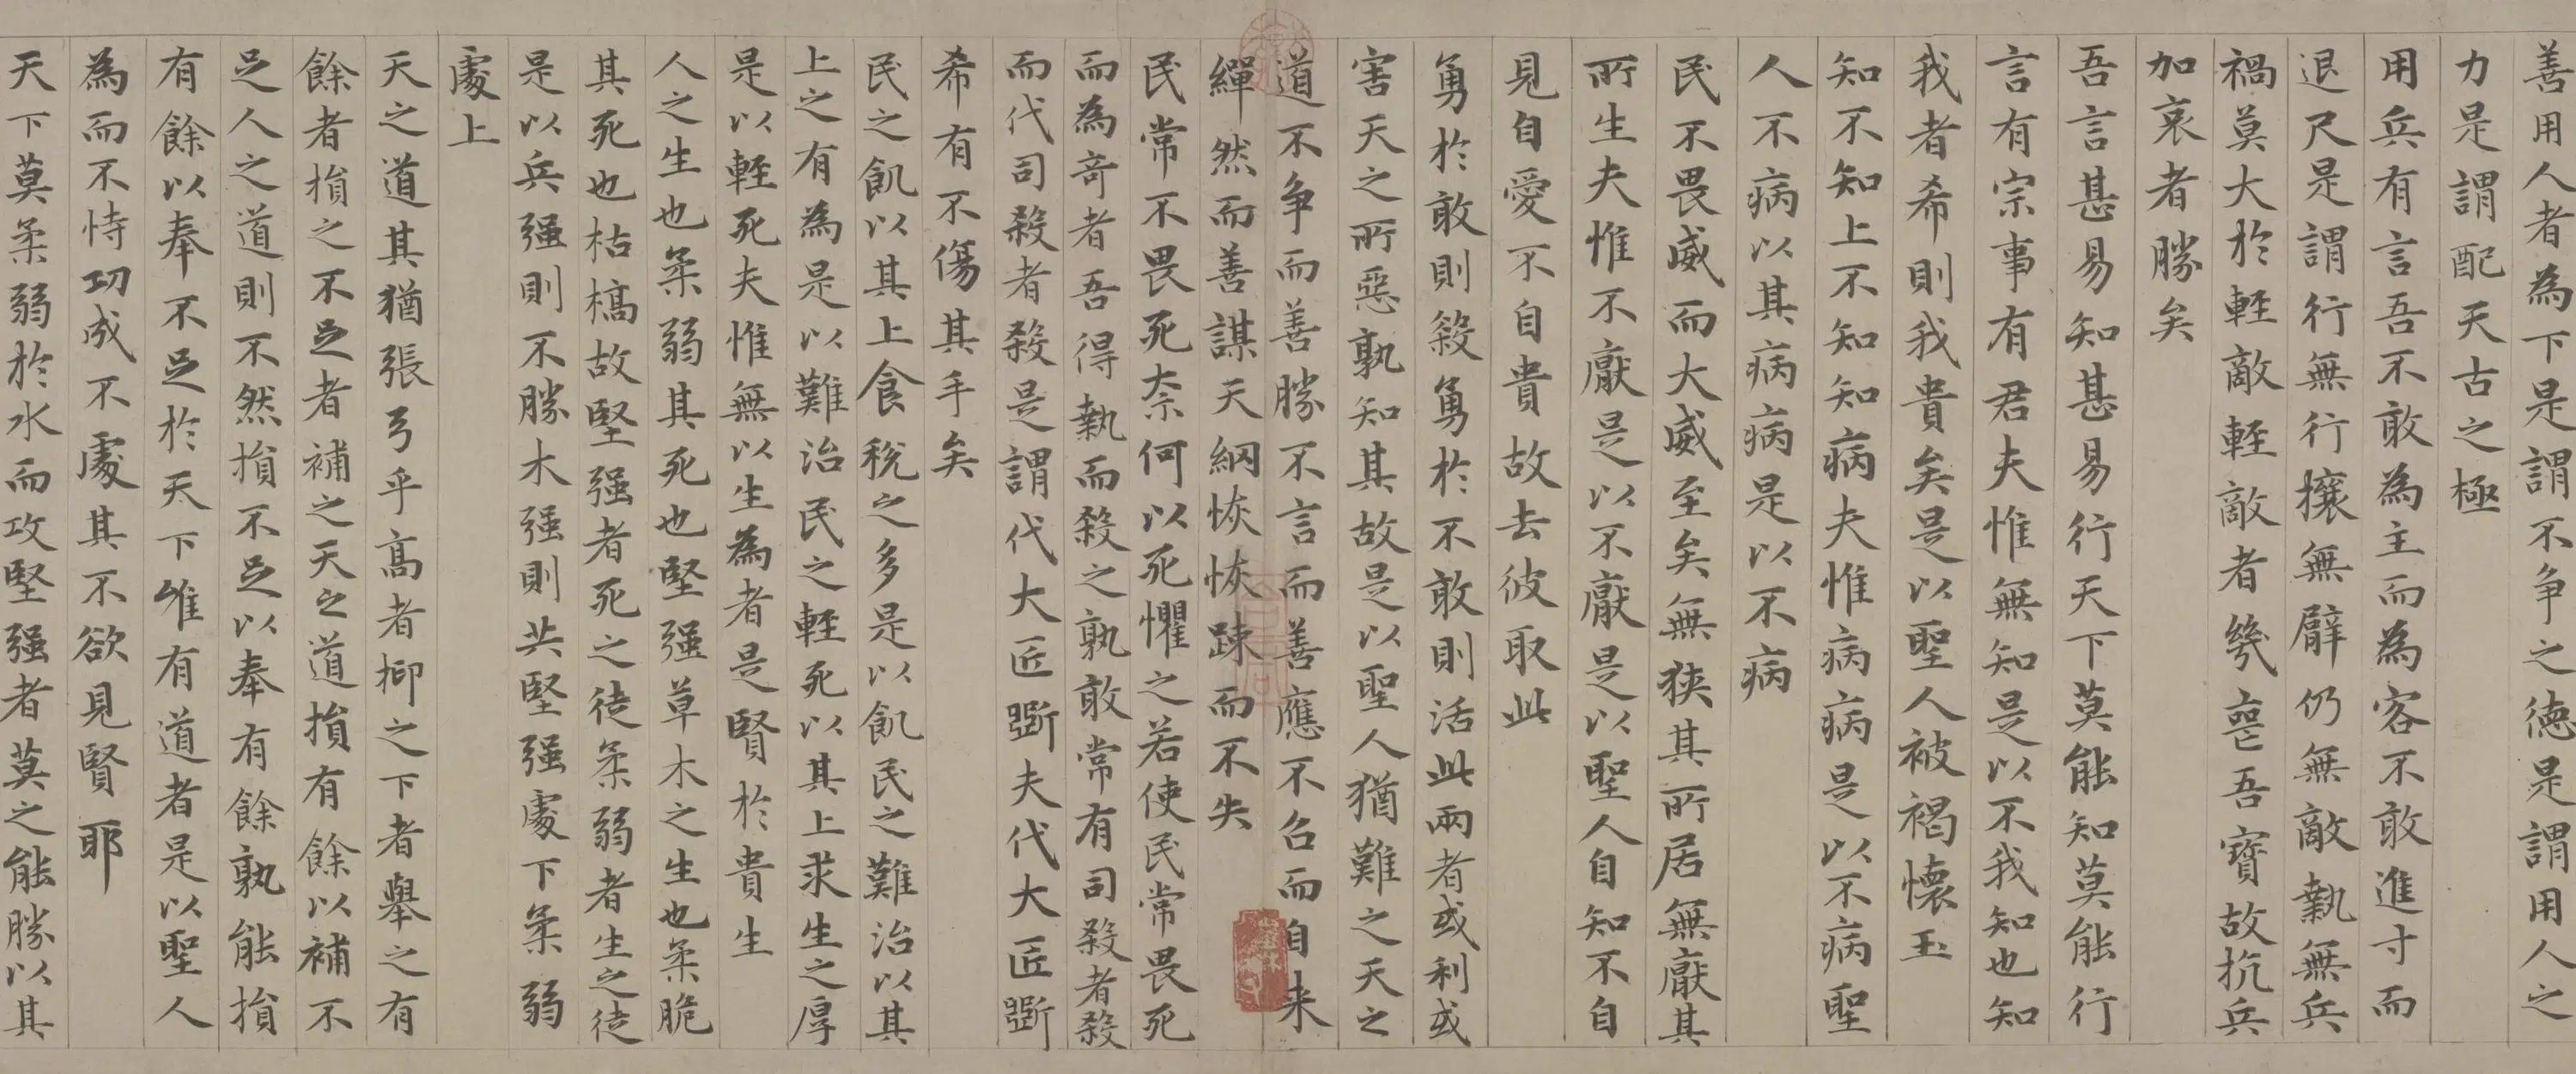 善用人者為下是謂不爭之德是謂用人之
力是謂配天古之極
用兵有言吾不敢為主而為客不敢進寸而
退尺是謂行無行攘無臂仍無敵執無兵
禍莫大於輕敵輕敵者幾喪吾寶故抗兵
加哀者勝矣
吾言甚易知甚易行天下莫能知莫能行
言有宗事有君夫惟無知是以不我知也知
我者希則我貴矣是以聖人被褐懷玉
知不知上不知知病夫惟病病是以不病聖
人不病以其病病是以不病
民不畏威而大威至矣無狹其所居無厭其
所生夫惟不厭是以不厭是以聖人自知不自
見自愛不自貴故去彼取此
勇於敢則殺勇於不敢則活此兩者或利或
害天之所惡孰知其故是以聖人猶難之天之
道不爭而善勝不言而善應不召而自来
繟然而善謀天網恢恢踈而不失
民常不畏死柰何以死懼之若使民常畏死
而為奇者吾得執而殺之孰敢常有司殺者殺
而代司殺者殺是謂代大匠斲夫代大匠斲
希有不傷其手矣
民之飢以其上食稅之多是以飢民之難治以其
上之有為是以難治民之輕死以其上求生之厚
是以輕死夫惟無以生為者是賢於貴生
人之生也柔弱其死也堅强草木之生也柔脆
其死也枯槁故堅强者死之徒柔弱者生之徒
是以兵强則不勝木强則共堅强處下柔弱
處上
天之道其猶張弓乎高者抑之下者舉之有
餘者損之不足者補之天之道損有餘以補不
足人之道則不然損不足以奉有餘孰能損
有餘以奉不足於天下唯有道者是以聖人
為而不恃功成不處其不欲見賢耶
天下莫柔弱於水而攻堅强者莫之能勝以其